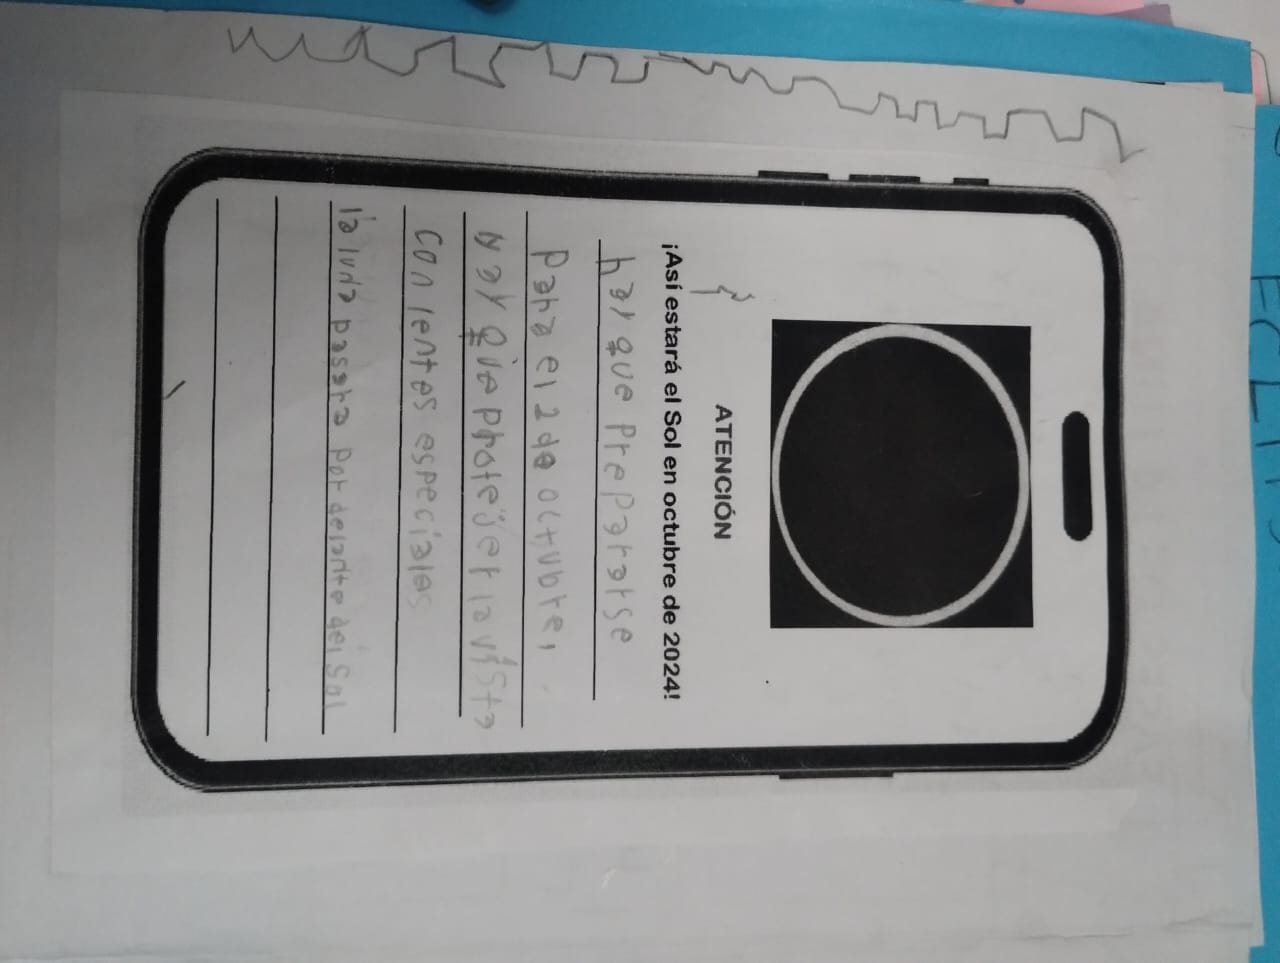 ATENCIÓN
¡Así estará el Sol en octubre de 2024!
hay que prepararse
para el 2 de octubre,
hay que protejer la vista
con lentes especiales
la luna pasara por delante del Sol